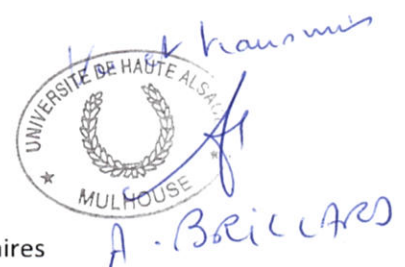 Vu et transmis
UNIVERSITE DE HAUTE ALSACE
* MULHOUSE *
A. BRILLARD
aires